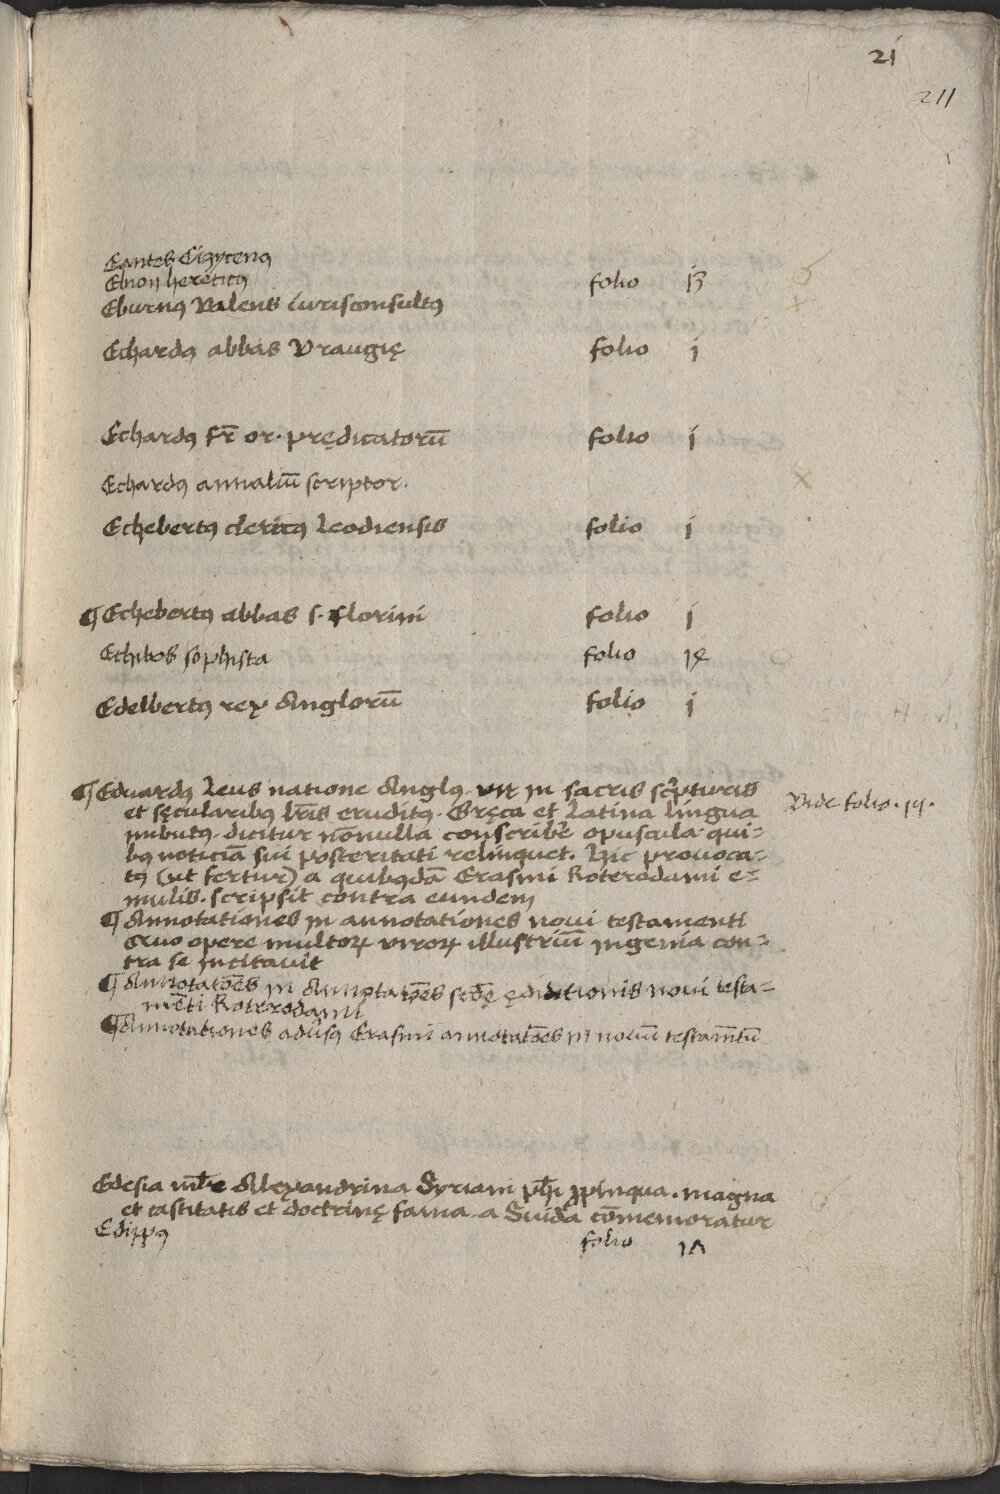 21
211
Eantes Cizycenꝰ
Ebion hereticꝰ folio 13
Eburnꝰ Valens iurisconsultꝰ
Echardꝰ abbas Uraugię folio j
Echardꝰ fr̄ or. prędicatorū folio j
Echardꝰ annaliū scriptor.
Echebertꝰ clericꝰ Leodiensis folio j
¶ Echebertꝰ abbas s. florini folio j
Echibos sophista folio 14
Edelbertꝰ rex Anglorū folio j
¶ Eduardꝰ Leus natione Anglꝰ. vir in sacris scripturis
et sęcularibꝰ lr̄is eruditꝰ. Gręca et Latina lingua
imbutꝰ. dicitur nōnulla conscribere opuscula qui=
bꝰ noticiā sui posteritati relinquet. Hic prouoca=
tꝰ (ut fertur) a quibꝰdā Erasmi Roterodami e=
mulis. scripsit contra eundem
Vide folio. 11.
¶ Annotationes in annotationes noui testamenti
Quo opere multoꝝ viroꝝ illustriū ingenia con=
tra se incitauit
¶ Annotatōes in Annotatōes scd̄ę ęditionis noui testa=
mēti Roterodami
¶ Annotationes adūsꝰ Erasmi annotatōes in nouū testam̄tū
Edesia ml̄r Alexandrina Syriani ph̄i ꝓpinqua. magna
et castitatis et doctrinę fama. a Suida cōmemoratur
Edippꝰ folio 1Λ